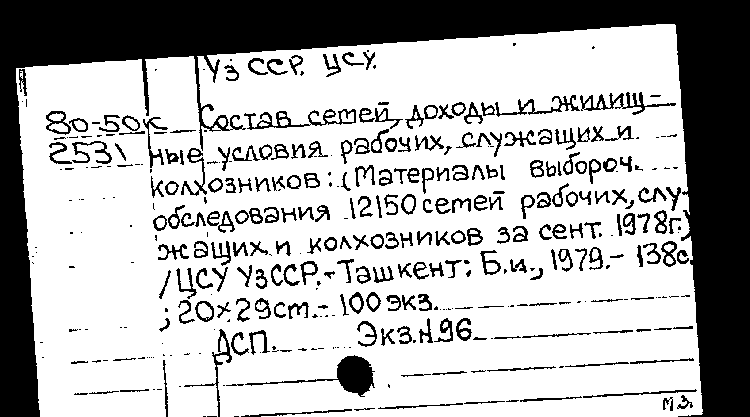 Уз ССР. ЦСУ.
80-50к Состав семей, доходы и жилищ-
2531 ные условия рабочих, служащих и
колхозников: (Материалы выбороч.
обследования 12150 семей рабочих, слу-
жащих и колхозников за сент. 1978г.)
/ЦСУ УзССР.-Ташкент: Б.и., 1979.- 138с.
; 20×29см.- 100 экз.
ДСП. Экз.N96
М З.